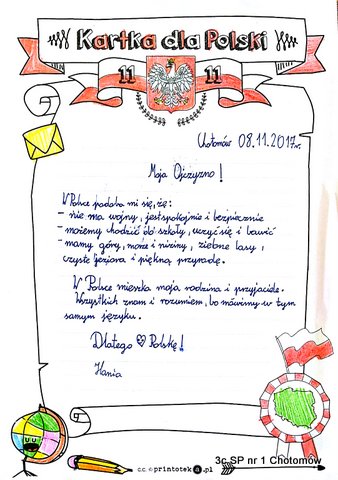 Kartka dla Polski
11 11
Chotomów 08.11.2017r.
Moja Ojczyzno!
W Polsce podoba mi się, że:
- nie ma wojny, jest spokojnie i bezpiecznie
- możemy chodzić do szkoły, uczyć się i bawić
- mamy góry, może i niziny, zielone lasy,
czyste jeziora i piękną przyrodę.
W Polsce mieszka moja rodzina i przyjaciele.
Wszystkich znam i rozumiem, bo mówimy w tym
samym języku.
Dlatego ♡ Polskę!
Hania
c.c. printoteka.pl
3c SP nr 1 Chotomów